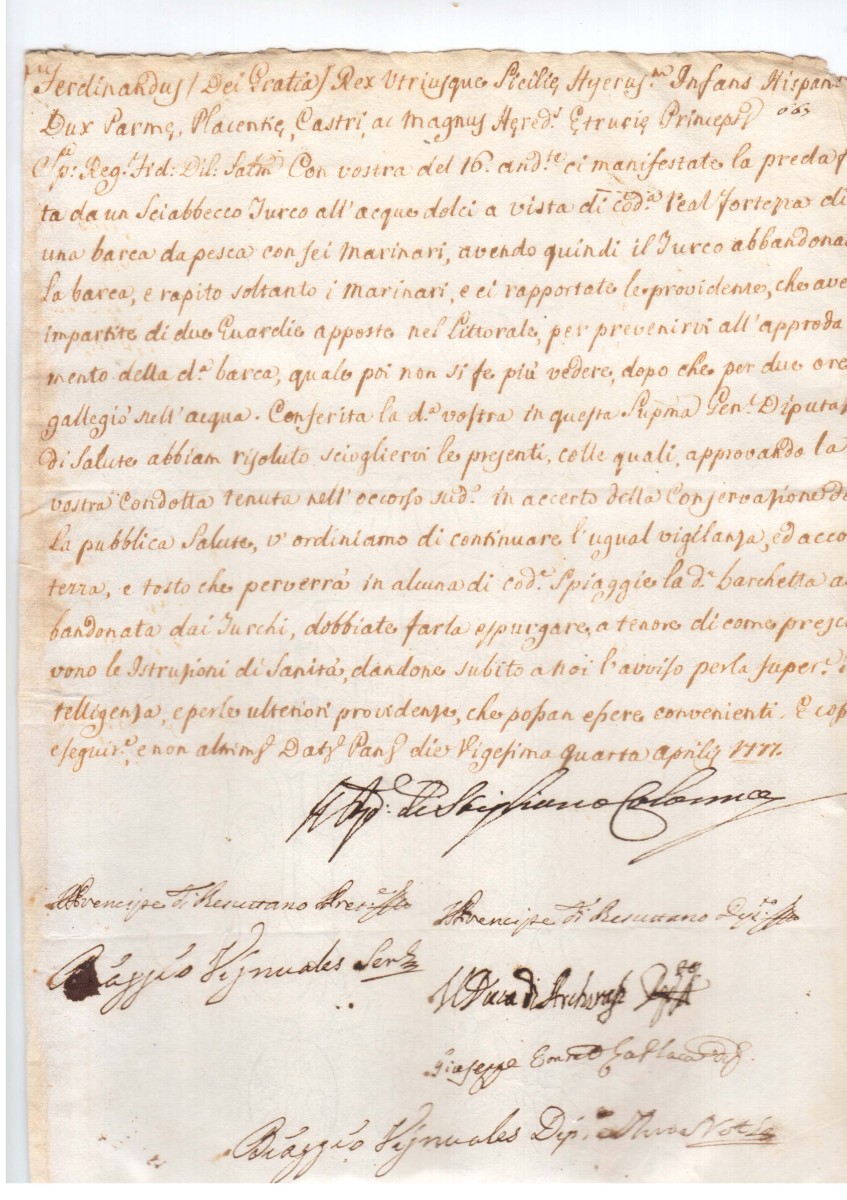 Ferdinandus / Dei Gratia / Rex Utriusque Sicilie Hyerus.m Infans Hispan.
Dux Parmę, Placentię, Castri, ac Magnus Hęred.s Etrurię Princeps
Sp: Reg: Fid: Dil: Con vostra del 16. and.te ci manifestate la preda f
ta da un Sciabbecco Turco all'acque dolci a vista di cod.a Real Fortezza di
una barca da pesca con sei Marinari, avendo quindi il Turco abbandona
La barca, e rapito soltanto i Marinari, e ci rapportate le providenze, che ave
impartite di due Guardie apposte nel Littorale, per prevenirvi all'approda
mento della d.a barca, quale poi non si fe più vedere, dopo che per due ore
gallegiò nell'acqua. Conferita la d.a vostra in questa Supma Gen.l Diputaz
di Salute abbiam risoluto sciogliervi le presenti, colle quali, approvando la
vostra Condotta tenuta nell'occorso sud.o in accerto della Conservazione de
La pubblica Salute, v'ordiniamo di continuare l'ugual vigilanza, ed acco
terza, e tosto che perverrà in alcuna di cod.e Spiaggie la d.a barchetta a
bandonata dai Turchi, dobbiate farla espurgare, a tenore di come presc
vono le Istruzioni di Sanità, dandone subito a noi l'avviso per la super.e i
telligenza, e per le ulteriori providenze, che possan essere convenienti. E cos
eseguir.e, e non altrim.i Dat. Pan. die Vigesima quarta aprilis 1777.
di Stigliano Colonna
Il Prencipe di Resuttano
Il Prencipe di Resuttano
Biaggio Vijnuales
Il Duca di
Giuseppe
Biaggio Vijnuales